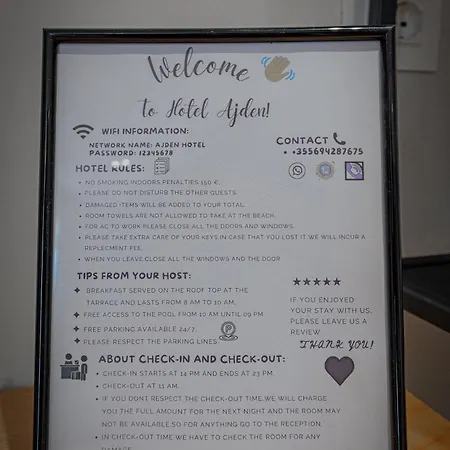 Welcome
to Hotel Ajden!
WIFI INFORMATION:
NETWORK NAME: AJDEN HOTEL
PASSWORD: 12345678
CONTACT
+355694287675
HOTEL RULES:
• NO SMOKING INDOORS PENALTIES 150 €.
• PLEASE DO NOT DISTURB THE OTHER GUESTS.
• DAMAGED ITEMS WILL BE ADDED TO YOUR TOTAL.
• ROOM TOWELS ARE NOT ALLOWED TO TAKE AT THE BEACH.
• FOR AC TO WORK PLEASE CLOSE ALL THE DOORS AND WINDOWS.
• PLEASE TAKE EXTRA CARE OF YOUR KEYS.IN CASE THAT YOU LOST IT WE WILL INCUR A
REPLECMENT FEE.
• WHEN YOU LEAVE,CLOSE ALL THE WINDOWS AND THE DOOR
TIPS FROM YOUR HOST:
BREAKFAST SERVED ON THE ROOF TOP AT THE
TARRACE AND LASTS FROM 8 AM TO 10 AM.
FREE ACCESS TO THE POOL FROM 10 AM UNTIL 09 PM
FREE PARKING AVAILABLE 24/7.
PLEASE RESPECT THE PARKING LINES
P
IF YOU ENJOYED
YOUR STAY WITH US,
PLEASE LEAVE US A
REVIEW
THANK YOU!
ABOUT CHECK-IN AND CHECK-OUT:
• CHECK-IN STARTS AT 14 PM AND ENDS AT 23 PM.
• CHECK-OUT AT 11 AM.
• IF YOU DONT RESPECT THE CHECK-OUT TIME,WE WILL CHARGE
YOU THE FULL AMOUNT FOR THE NEXT NIGHT AND THE ROOM MAY
NOT BE AVAILABLE.SO FOR ANYTHING GO TO THE RECEPTION.
• IN CHECK-OUT TIME WE HAVE TO CHECK THE ROOM FOR ANY
DAMAGE